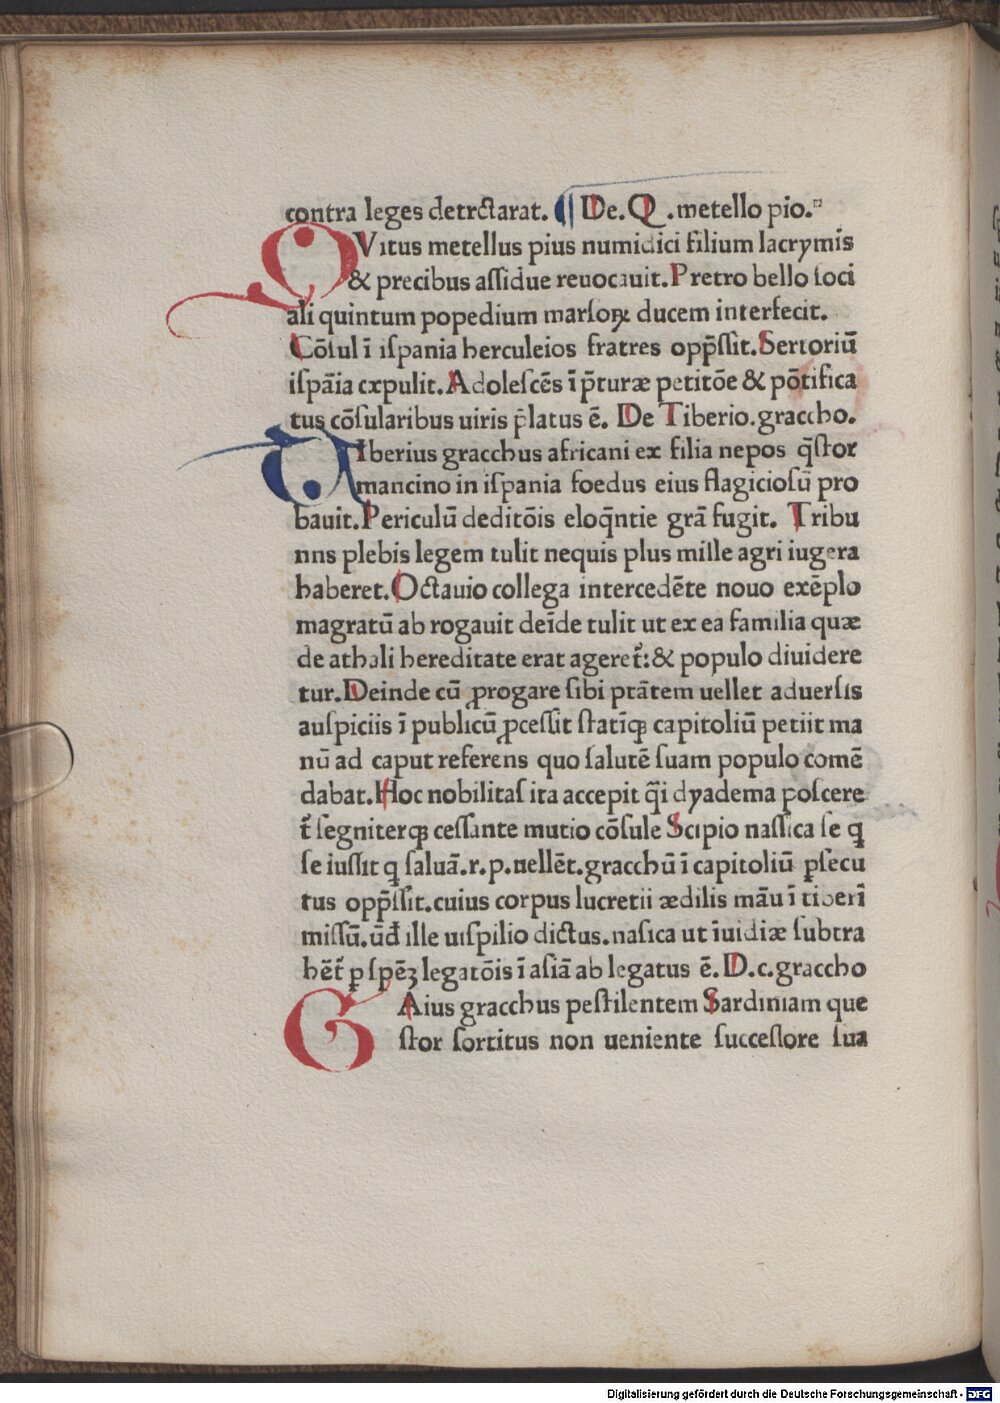 contra leges detrctarat. ¶ De. Q .metello pio.
QVitus metellus pius numidici filium lacrymis
& precibus aſſidue reuocauit. Pretro bello ſoci
ali quintum popedium marſoꝝ ducem interfecit.
Cōſul ī iſpania herculeios fratres opp̄ſſit. Sertoriū
iſpāia cxpulit. Adoleſcēs ī p̄turæ petitōe & pōtifica
tus cōſularibus uiris p̄latus ē. De Tiberio. graccho.
TIberius gracchus africani ex filia nepos q̄ſtor
mancino in iſpania foedus eius flagicioſū pro
bauit. Periculū deditōis eloq̄ntie grā fugit. Tribu
nns plebis legem tulit nequis plus mille agri iugera
haberet. Octauio collega intercedēte nouo exēplo
magratū ab rogauit deīde tulit ut ex ea familia quæ
de athali hereditate erat ageret᷑: & populo diuidere
tur. Deinde cū ꝓrogare ſibi ptātem uellet aduerſis
auſpiciis ī publicū ꝓceſſit ſtatīqꝫ capitoliū petiit ma
nū ad caput referens quo ſalutē ſuam populo comē
dabat. Hoc nobilitaſ ita accepit q̄i dyadema poſcere
t᷑ ſegniterqꝫ ceſſante mutio cōſule Scipio naſſica ſe ꝗ
ſe iuſſit ꝗ ſaluā. r. p. uellēt. gracchū ī capitoliū ꝑſecu
tus opp̄ſſit. cuius corpus lucretii ædilis māu ī tiberī
miſſū. ūd ille uiſpilio dictus. naſica ut īuidiæ ſubtra
hēt᷑ ꝑ ſpēꝫ legatōis ī aſiā ab legatus ē. D. c. graccho
GAius gracchus peſtilentem Sardiniam que
ſtor ſortitus non ueniente ſucceſſore ſua
Digitalisierung gefördert durch die Deutsche Forschungsgemeinschaft - DFG